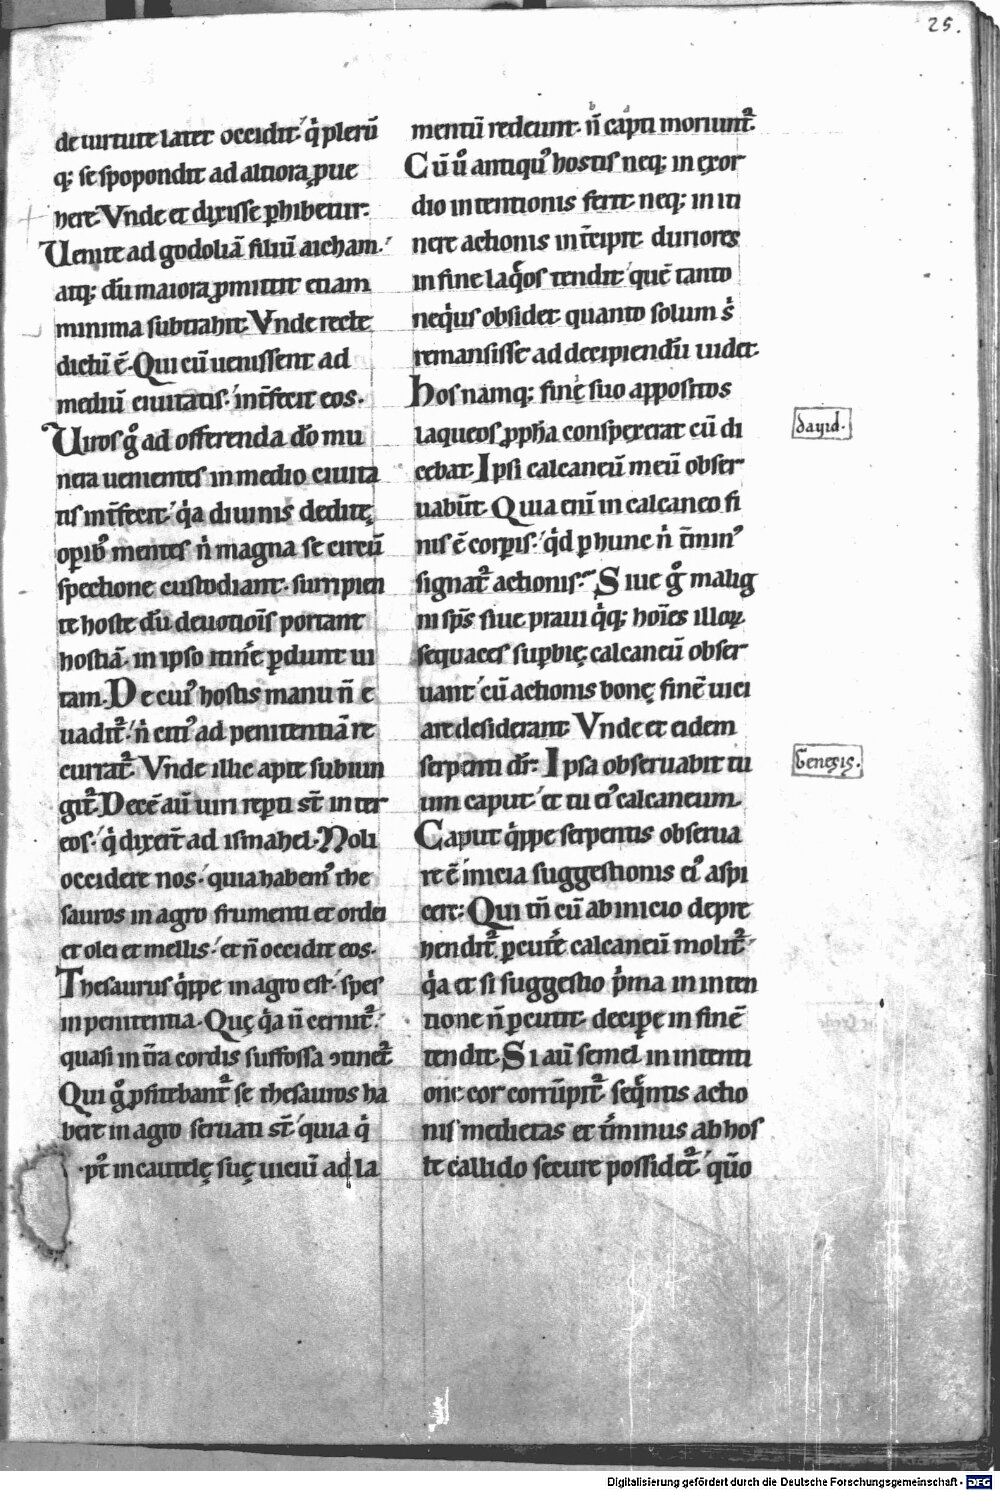 25.
de uirtute later occidit.' q̇ plerū
q; se spopondit ad altiora pue
nere. Vnde et dixisse phibetur.
Venite ad godoliā filiū aicham.'
atq; dū maiora pmittit etiam
minima subtrahit. Vnde recte
dictū ē. Qui cū uenissent ad
mediū ciuitatis.' int̄fecit eos.
Viros g̊ ad offerenda dō mu
nera uenientes in medio ciuita
tis int̄fecit.' q̇a diuinis dedite
opib' mentes ṅ magna se circū
spectione custodiant. surripien
te hoste dū deuotiois portant
hostiā. in ipso itin̄e pdunt ui
tam. De cui' hostis manu n̄ e
uadit̄.' ṅ citi' ad penitentiā re
currat̄. Vnde illic apte subiun
git̄. Decē aū uiri repti st̄ inter
eos.' q̇ dixert̄ ad ismahel. Noli
occidere nos.' quia habem' the
sauros in agro frumenti et ordei
et olei et mellis.' et n̄ occidit eos.
Thesaurus q̇ppe in agro est.' spes
in penitentia. Quę q̇a n̄ cernit̄.'
quasi in t̄ra cordis suffossa ɔtinet̄.
Qui g̊ pfitebant̄ se thesauros ha
bere in agro seruati st̄.' quia q̇
.pt̄ incautelę suę uiciū ad la
mentū redeunt. n̄ capti moriunt̄.
Cū ů antiqu' hostis neq; in exor
dio intentionis ferit neq; in iti
nere actionis int̄cipit. duriores
in fine laq̊os tendit.' quē tanto
neq̇us obsidet quanto solum ṡ
remansisse ad decipiendū uidet.
Hos namq; fine suo appositos
laqueos ppha conspexerat cū di
cebat. Ipsi calcaneū meū obser
uabūt. Quia eni in calcaneo fi
nis ē corpis.' q̇d p hunc ṅ t̄min'
signat̄ actionis. Siue g̊ malig
ni sps siue praui q̇q; hoies illoꝝ
sequaces supbię calcaneū obser
uant.' cū actionis bonę finē uici
are desiderant. Vnde et eidem
serpenti dr̄. Ipsa obseruabit tu
um caput.' et tu ei' calcaneum.
Caput q̇ppe serpentis obserua
re ē inicia suggestionis ei' aspi
cere. Qui tn̄ cū ab inicio depre
hendit̄. pcute calcaneū molit̄.'
q̇a et si suggestio ṗma in inten
tione n̄ pcutit. decipe in finē
tendit. Si aū semel in intenti
one cor corrūpit̄. seq̄ntis actio
nis medietas et t̄minus ab hos
te callido secure possidet̄.' qūo
dauid.
Genesis.
Digitalisierung gefördert durch die Deutsche Forschungsgemeinschaft - DFG